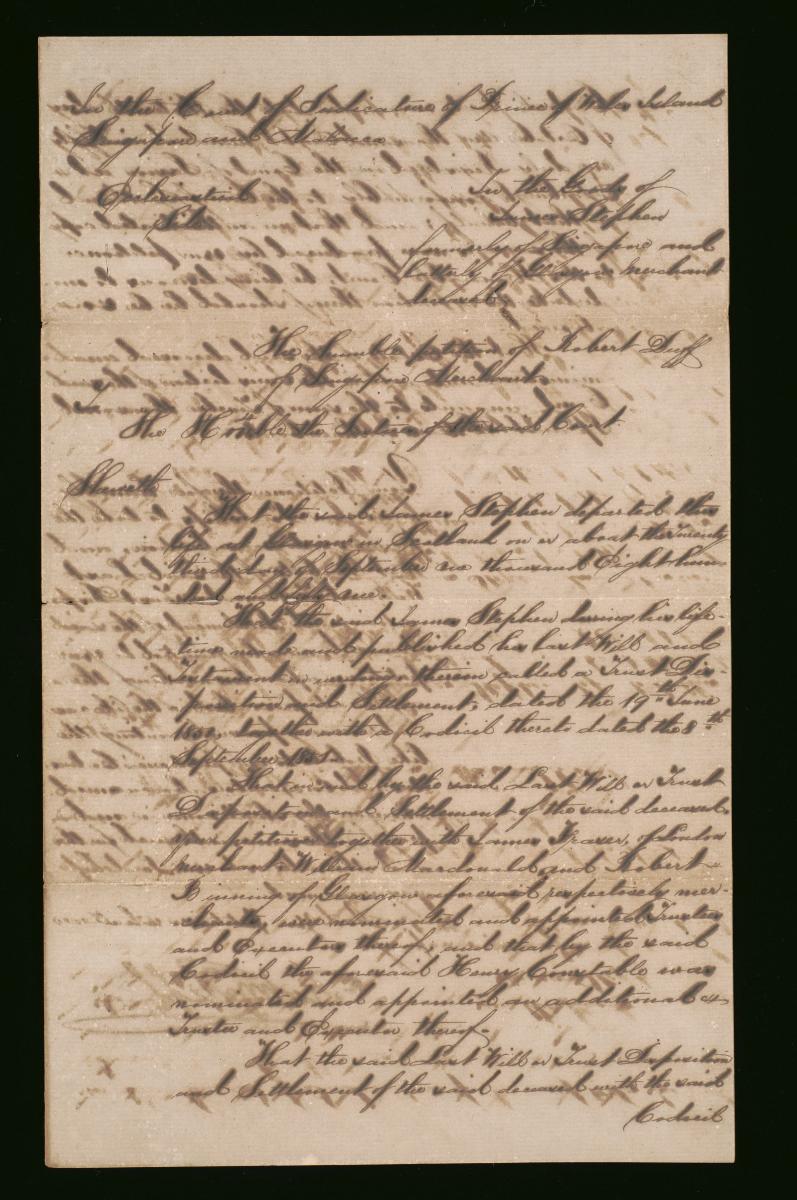 In the Court of Judicature of Prince of Wales Island
Singapore and Malacca
Ecclesiastical
Side
In the Goods of
James Stephen
formerly of Singapore and
latterly of Glasgow Merchant
deceased
The humble petition of Robert Duff
of Singapore Merchant
To
The Honble the Justices of the said Court
Sheweth
That the said James Stephen departed this
life at in Scotland on or about the Twenty
third day of September one thousand Eight hun-
dred and fifty one.
That the said James Stephen during his life-
time made and published his last Will and
Testament in writing therein called a Trust Dis-
position and Settlement, dated the 19th June
together with a Codicil thereto dated the 8th
September
That in and by the said Last Will or Trust
Disposition and Settlement of the said deceased
your petitioner together with James Frazer, of London
merchant William Macdonald and Robert
Binning of Glasgow aforesaid respectively mer-
chants, were nominated and appointed Trustees
and Executors thereof, and that by the said
Codicil the aforesaid Henry Constable was
nominated and appointed an additional
Trustee and Executor thereof.
That the said Last Will or Trust Disposition
and Settlement of the said deceased with the said
Codicil